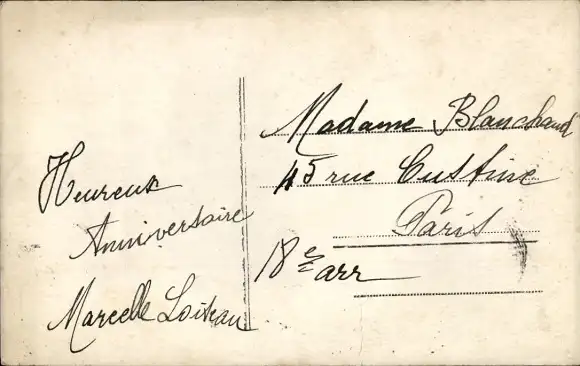 Heureux
Anniversaire
Marcelle Loiteau
Madame Blanchaud
45 rue Custine
Paris
18e arr